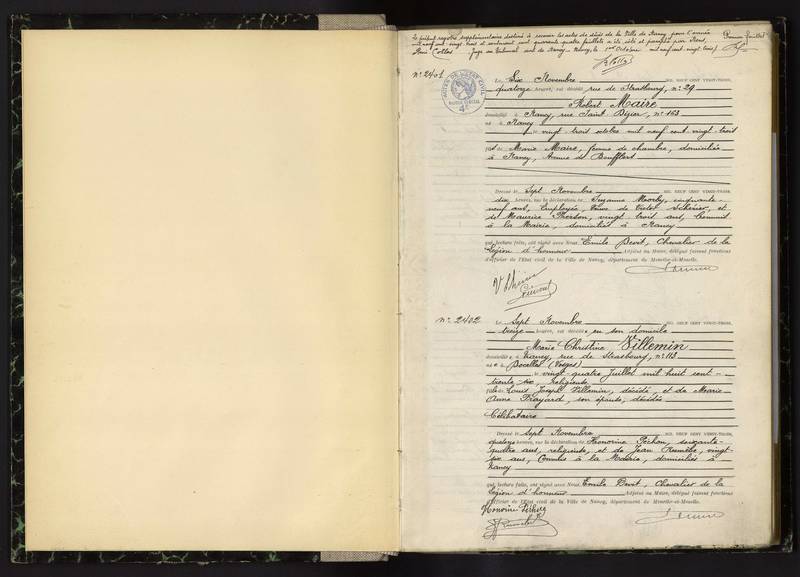 Le présent registre supplémentaire destiné à recevoir les actes de décès de la Ville de Nancy pour l'année
mil neuf cent vingt trois et contenant cent quarante quatre feuillets a été coté et paraphé par Nous,
Juge au Tribunal civil de Nancy. Nancy, le 1er Octobre mil neuf cent vingt trois
Premier feuillet
No 2401
Le Six Novembre MIL NEUF CENT VINGT-TROIS,
quatorze heures, est décédé rue de Strasbourg, no 29
Robert Maire
domicilié à Nancy, rue Saint Dizier, no 163
né à Nancy
le vingt-trois octobre mil neuf cent vingt trois
fils de Marie Maire, femme de chambre, domiciliée
à Nancy, Avenue de Boufflers
Dressé le Sept Novembre MIL NEUF CENT VINGT-TROIS,
dix heures, sur la déclaration de Suzanne cinquante
neuf ans, Employée, Veuve de Victor et
de Maurice vingt trois ans, Commis
à la Mairie, domiciliés à Nancy
qui, lecture faite, ont signé avec Nous Emile Chevalier de la
Légion d'honneur Adjoint au Maire, délégué faisant fonctions
d'officier de l'Etat civil de la Ville de Nancy, département de Meurthe-et-Moselle.
No 2402
Le Sept Novembre MIL NEUF CENT VINGT-TROIS,
treize heures, est décédée en son domicile
Marie Christine Villemin
domiciliée à Nancy, rue de Strasbourg, no 113
née à (Vosges)
le vingt-quatre Juillet mil huit cent
trente six religieuse
fille de Louis Joseph Villemin, décédé et de Marie
Anne son épouse, décédée
Célibataire
Dressé le Sept Novembre MIL NEUF CENT VINGT-TROIS,
quatorze heures, sur la déclaration de Honorine soixante
quatre ans, religieuse, et de Jean vingt
six ans, Commis à la Mairie, domiciliés à
Nancy
qui, lecture faite, ont signé avec Nous Emile Chevalier de la
Légion d'honneur Adjoint au Maire, délégué faisant fonctions
d'officier de l'Etat civil de la Ville de Nancy, département de Meurthe-et-Moselle.
Honorine